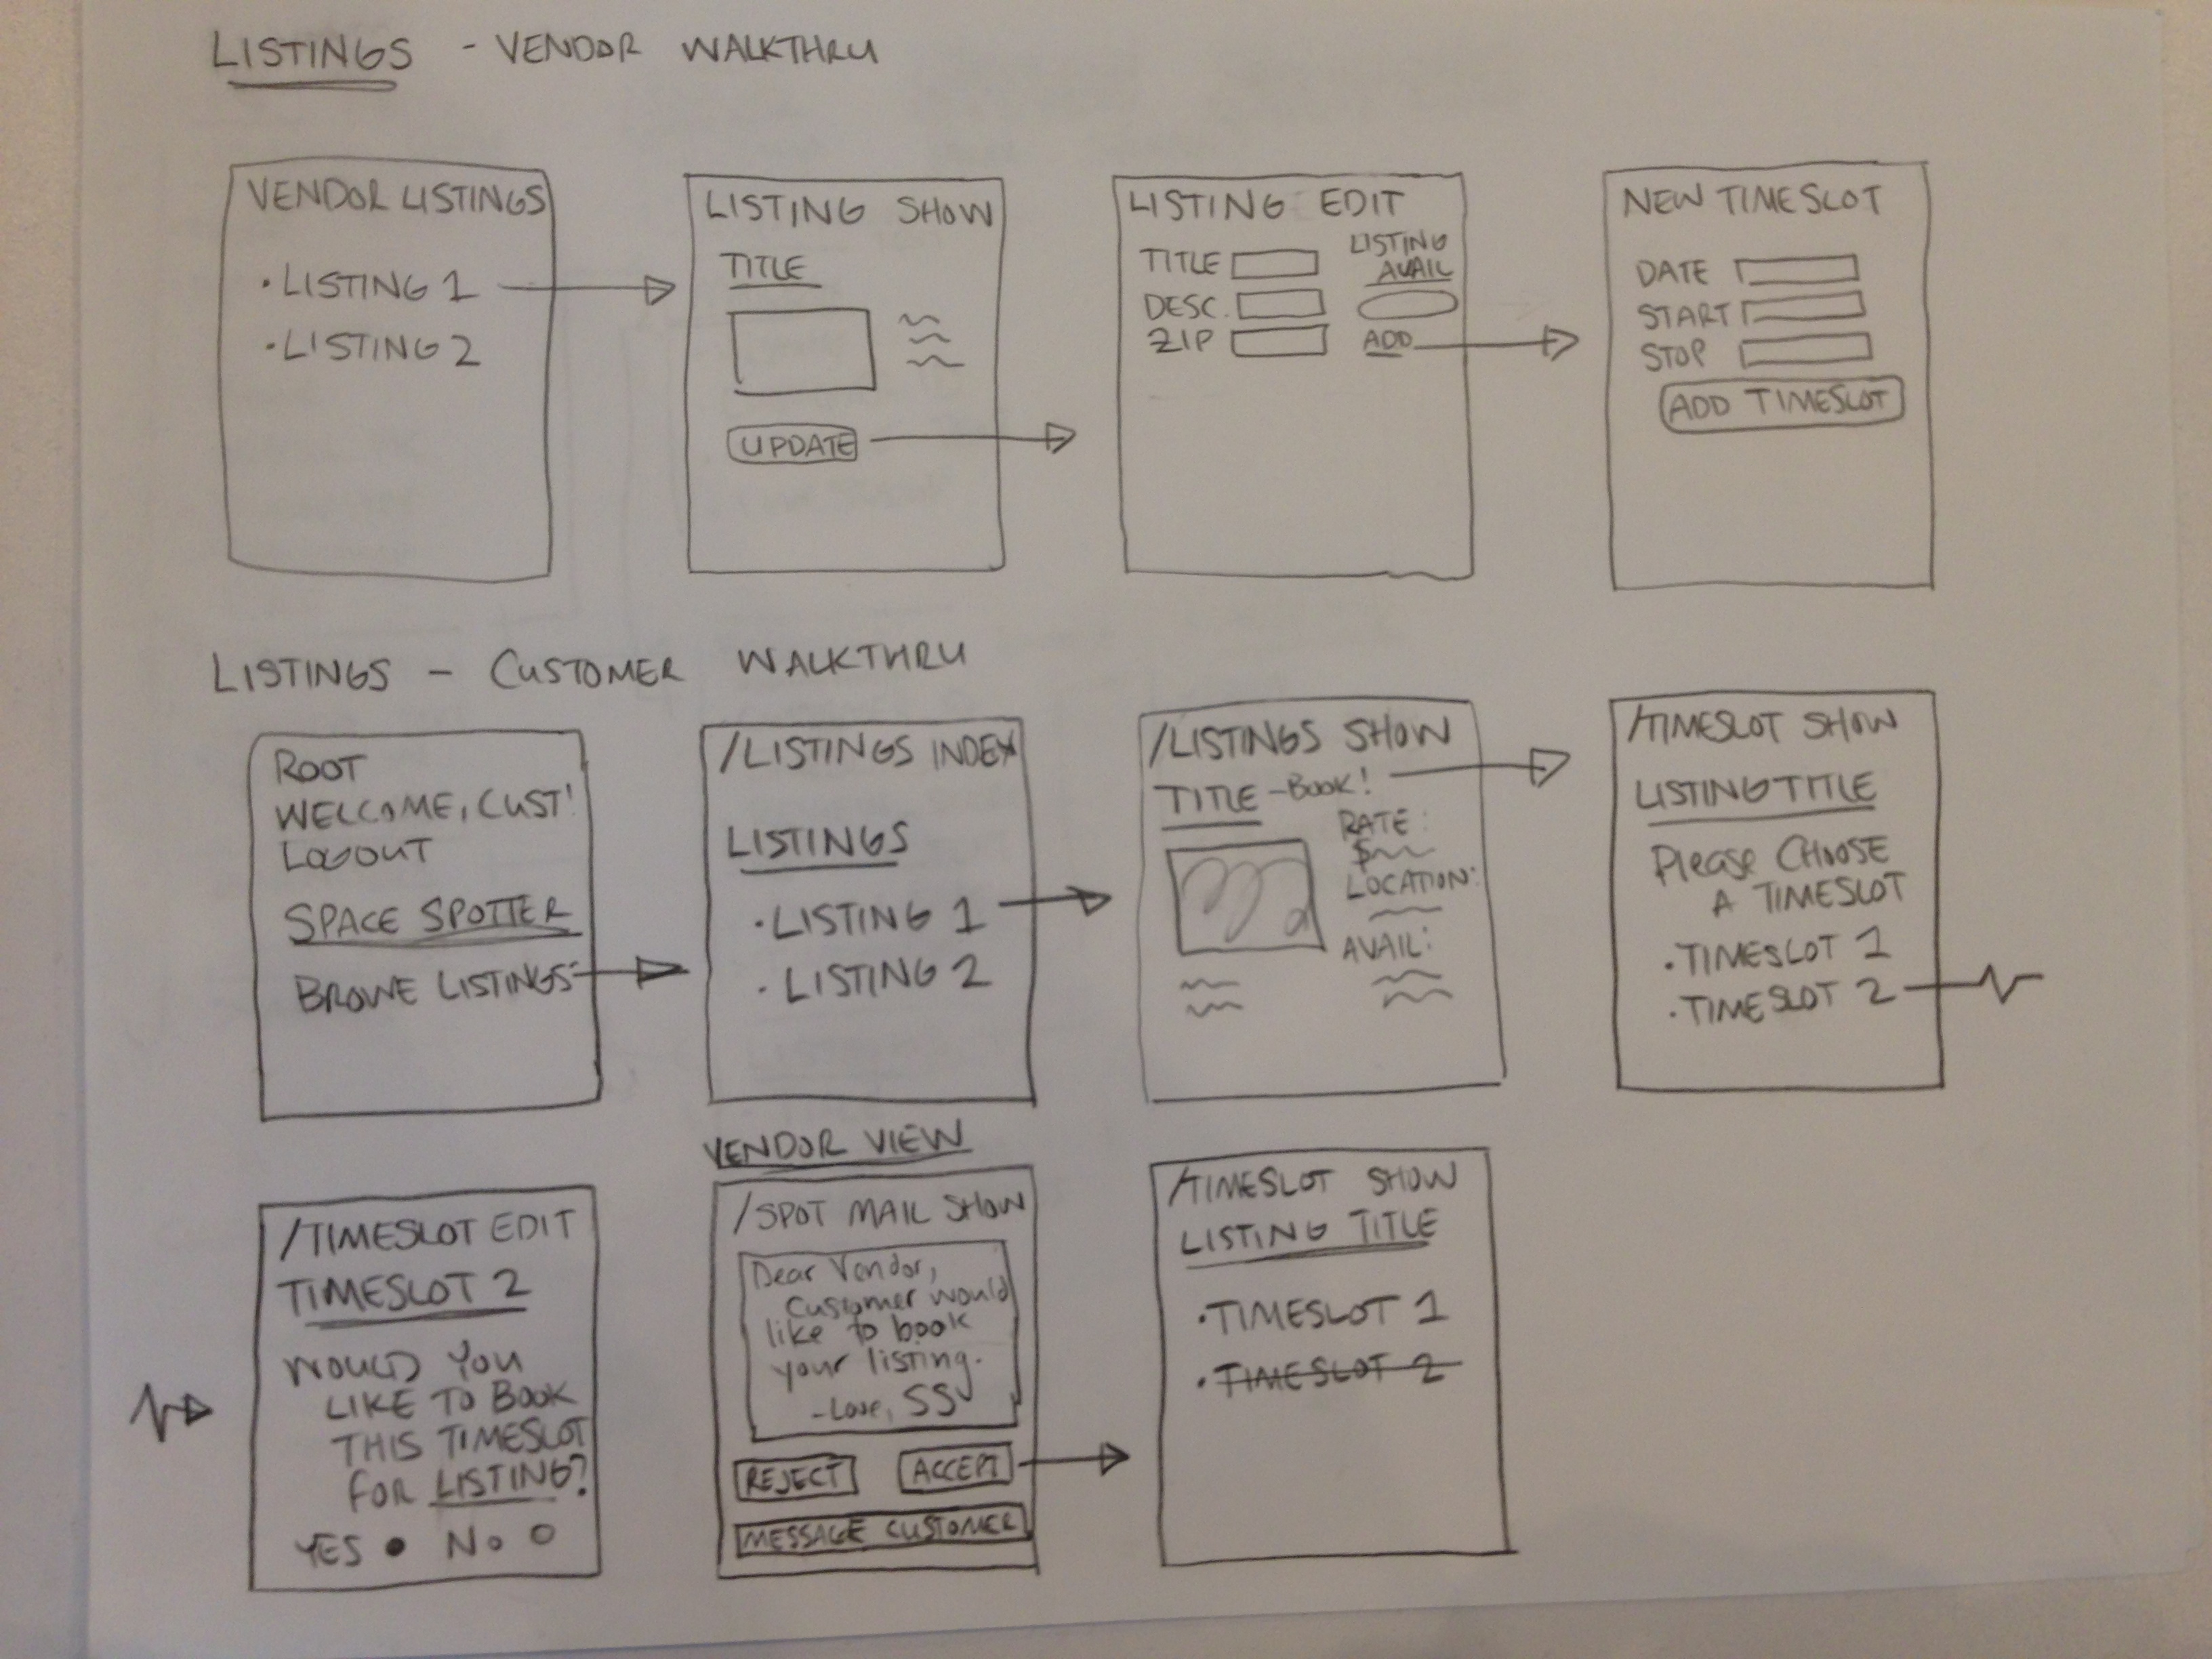 LISTINGS - VENDOR WALKTHRU
VENDOR LISTINGS
· LISTING 1
· LISTING 2
LISTING SHOW
TITLE
UPDATE
LISTING EDIT
TITLE
DESC.
ZIP
LISTING
AVAIL
ADD
NEW TIMESLOT
DATE
START
STOP
ADD TIMESLOT
LISTINGS - CUSTOMER WALKTHRU
ROOT
WELCOME, CUST!
LOGOUT
SPACE SPOTTER
BROWE LISTINGS
/LISTINGS INDEX
LISTINGS
· LISTING 1
· LISTING 2
/LISTINGS SHOW
TITLE - BOOK!
RATE:
$
LOCATION:
AVAIL:
/TIMESLOT SHOW
LISTING TITLE
Please CHOOSE
A TIMESLOT
· TIMESLOT 1
· TIMESLOT 2
/TIMESLOT EDIT
TIMESLOT 2
WOULD YOU
LIKE TO BOOK
THIS TIMESLOT
FOR LISTING?
YES NO
VENDOR VIEW
/SPOT MAIL SHOW
Dear Vendor,
Customer would
like to book
your listing.
-Love, SS
REJECT
ACCEPT
MESSAGE CUSTOMER
/TIMESLOT SHOW
LISTING TITLE
· TIMESLOT 1
· TIMESLOT 2